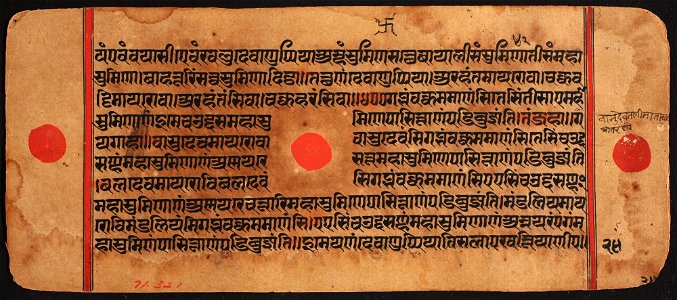 卐
५२
यंएवंवयासीएवंखलुदेवाणुप्पियाअम्हंसुमिणसत्थेबायालीसंसुमिणातीसंमहा
सुमिणा।बाहत्तरिंसव्वसुमिणादिठा॥तत्थणंदेवाणुप्पिया।अरहंतमायरोवा।चक्कव
ट्टिमायरोवा।अरहंतंसिवा।चक्कहरंसिवा॥गब्भंवक्कममाणंसिएतेसिंतीसाएमहा
सुमिणाणं।इमेचउद्दसमहासु मिणेपासित्ताणंपडिबुज्झंति।तंजहा॥ग
यगाहा॥वासुदेवमायरोवा वासुदेवंसिगब्भंवक्कममाणंसिएतेसिंचउद्द
सण्हंमहासुमिणाणंअन्नयरे सत्तमहासुमिणेपासित्ताणंपडिबुज्झंति
।बलदेवमायरोवाबलदेवं सिगब्भंवक्कममाणंसिएएसिंचउद्दसण्हं
महासुमिणाणंअन्नयरेचत्तारिमहासुमिणेपासित्ताणंपडिबुज्झंति।मंडलियमाय
रोवामंडलियंसिगब्भंवक्कममाणंसि।एएसिंचउद्दसण्हंमहासुमिणाणंअन्नयरंएगंम
हासुमिणंपासित्ताणंपडिबुज्झंति॥इमेयणंदेवाणुप्पियातिसलाएखत्तियाणीए।
२४
71.321